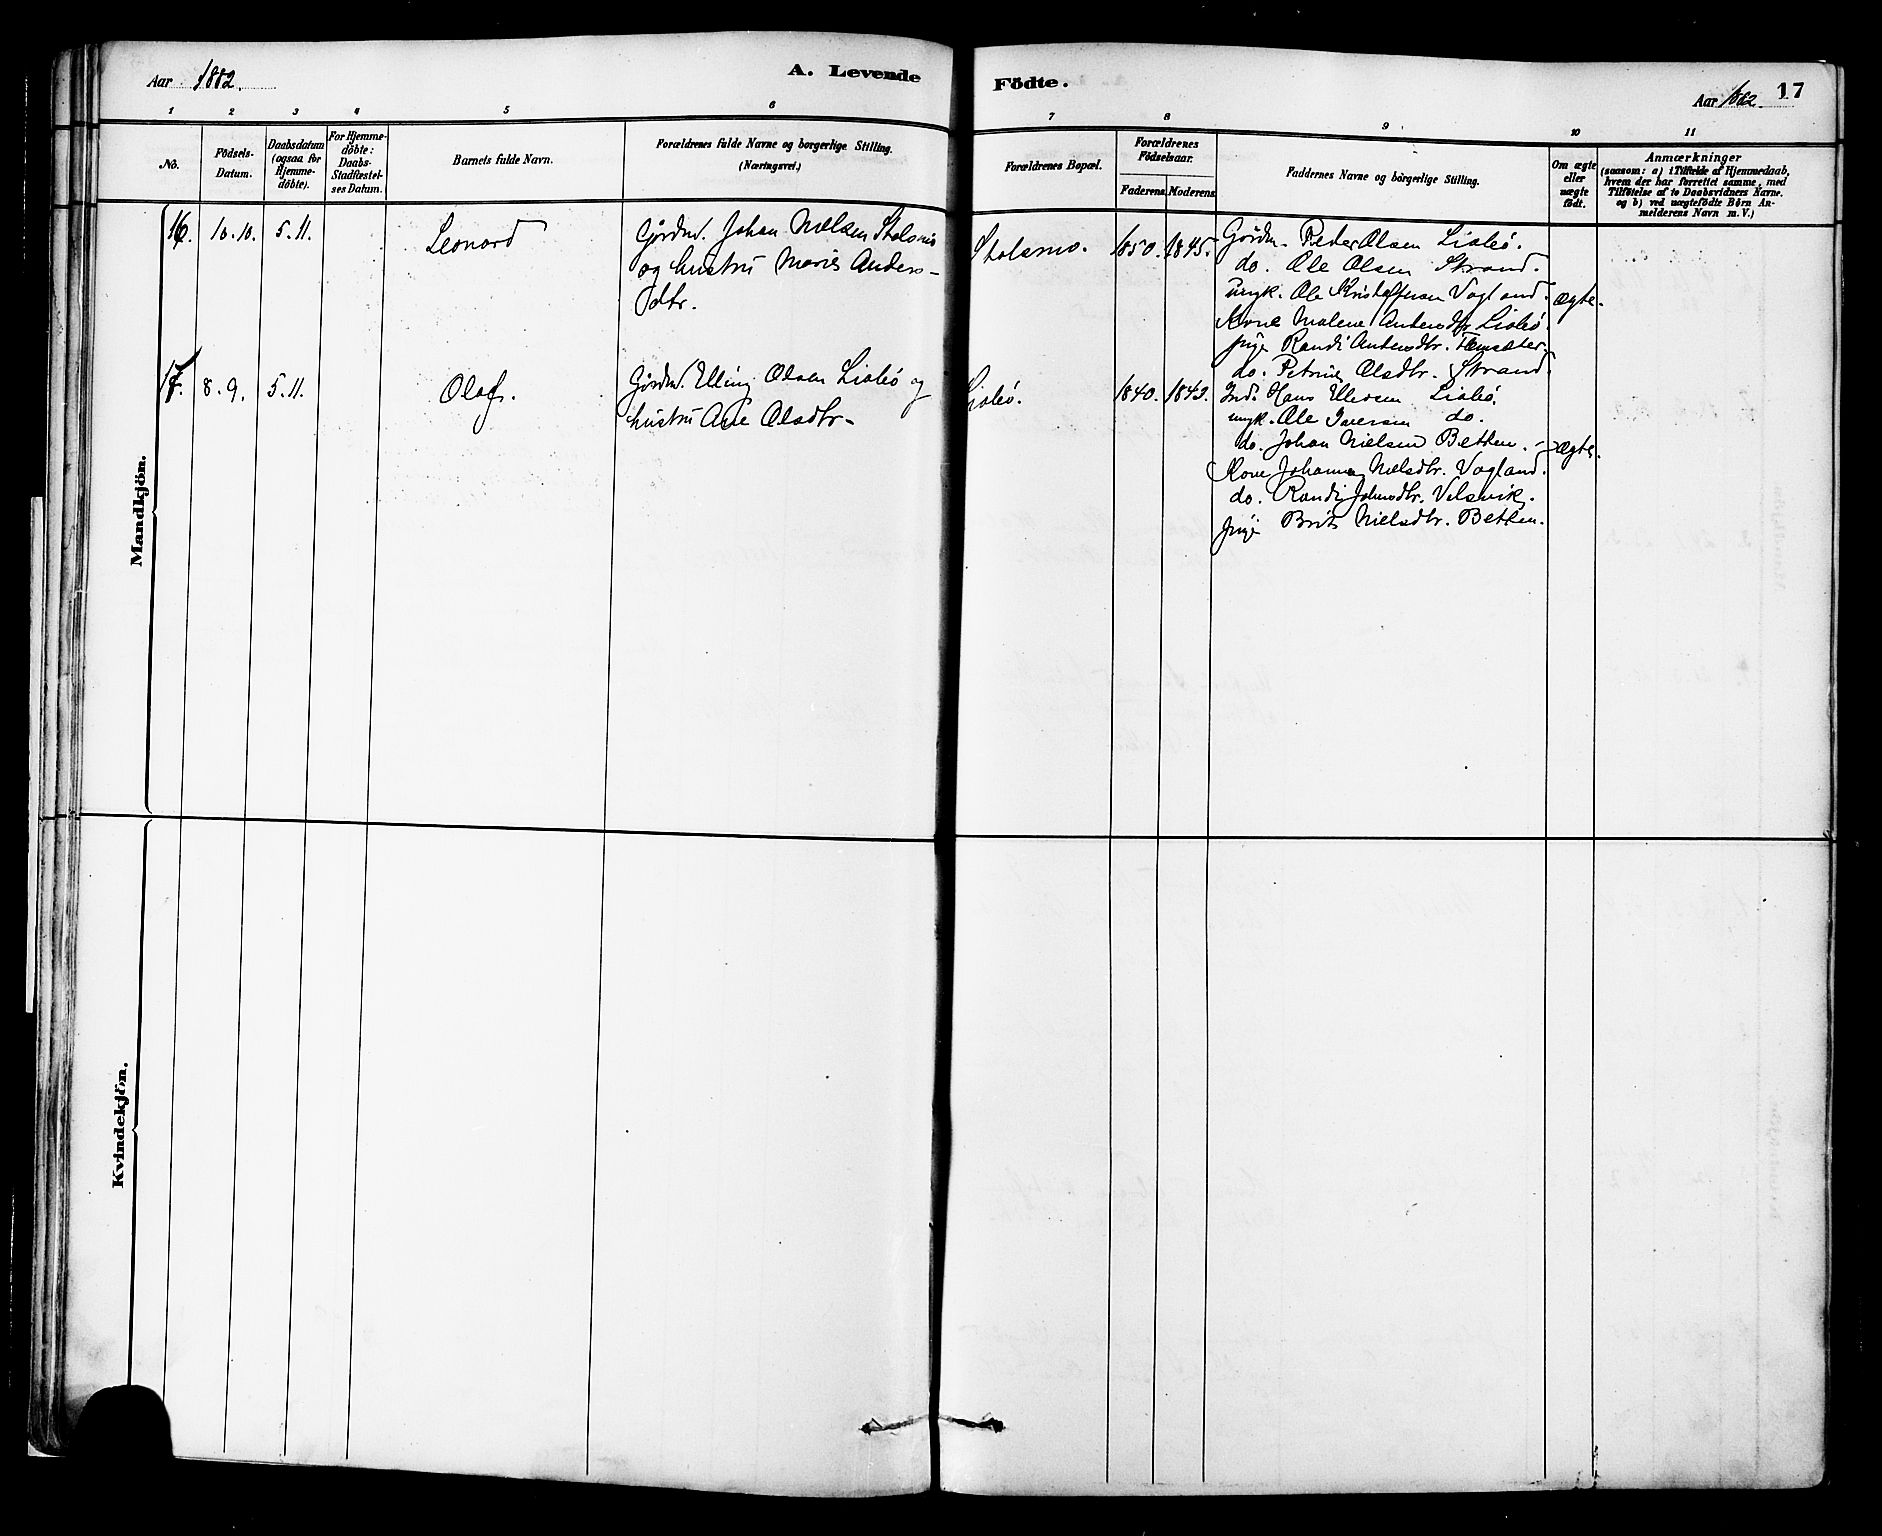 Aar 1882.
A. Levende
Födte.
Aar 1882
17
1 2 3 4 5 6 7 8 9 10 11
No.
Födsels-
Datum.
Daabsdatum
(ogsaa for
Hjemme-
döbte).
For Hjemme-
döbte:
Daabs-
Stadfæstel-
ses Datum.
Barnets fulde Navn.
Forældrenes fulde Navne og borgerlige Stilling.
(Næringsvei.)
Forældrenes Bopæl.
Forældrenes
Födselsaar.
Faderens. Moderens.
Faddernes Navne og borgerlige Stilling.
Om ægte
eller
uægte
födt.
Anmærkninger
(saasom: a) i Tilfælde af Hjemmedaab,
hvem der har forrettet samme, med
Tilföielse af to Daabsvidners Navne,
og b) ved uægtefödte Börn An-
melderens Navn m. V.)
Mandkjön.
16. 10.10. 5.11. Leonard
Gårdm. Johan Nielsen Stolsmo
og hustru Marie Anders-
dtr.
Stolsmo. 1850. 1845.
Gårdm. Peder Olsen Liabö.
do. Ole Olsen Strand.
ungk. Ole Kristoffersen Vogland.
Kone Malene Andersdtr. Liabö.
pige Randi Andersdtr.
do. Petrine Olsdtr. Strand.
ægte.
17. 8.9. 5.11. Olaf.
Gårdm. Elling Olsen Liabö og
hustru Ane Olsdtr.
Liabö. 1840. 1843.
Ind. Hans Ellevsen Liabö.
ungk. Ole Iversen do.
do. Johan Nielsen Betten.
Kone Johanna Nielsdtr. Vogland.
do. Randi Johnsdtr. Valsvik.
pige Brit Nielsdtr. Betten.
ægte.
Kvindekjön.